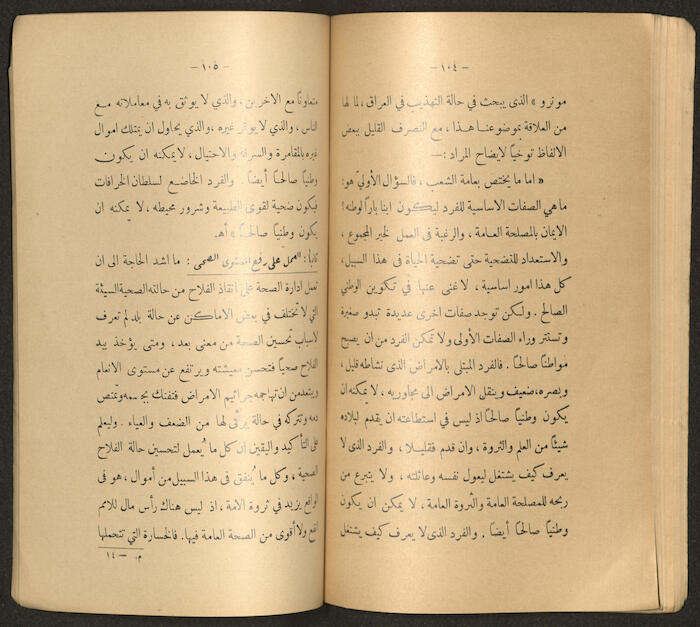 — ١٠٤ —
مونرو » الذى يبحث في حالة التهذيب في العراق، لما لها
من العلاقة بموضوعنا هذا ، مع التصرف القليل ببعض
الالفاظ توخياً لايضاح المراد :—
« اما ما يختص بعامة الشعب ، فالسؤال الأوليّ هو:
ما هي الصفات الاساسية للفرد ليكون ابنا باراً لوطنه !
الايمان بالمصلحة العامة ، والرغبة في العمل لخير المجموع ،
والاستعداد للتضحية حتى تضحية الحياة في هذا السبيل ،
كل هذا امور اساسية ، لا غنى عنها في تكوين الوطني
الصالح . ولكن توجد صفات اخرى عديدة تبدو صغيرة
وتستتر وراء الصفات الأولى ولا تمكن الفرد من ان يصبح
مواطناً صالحاً . فالفرد المبتلى بالامراض الذى نشاطه قليل ،
وبصره ضعيف وينقل الامراض الى مجاوريه ، لا يمكنه ان
يكون وطنياً صالحاً اذ ليس في استطاعته ان يقدم لبلاده
شيئاً من العلم والثروة ، وان قدم فقليلا ، والفرد الذى لا
يعرف كيف يشتغل ليعول نفسه وعائلته ، ولا يتبرع من
ربحه للمصلحة العامة والثروة العامة ، لا يمكن ان يكون
وطنياً صالحاً أيضاً . والفرد الذى لا يعرف كيف يشتغل
— ١٠٥ —
متعاوناً مع الآخرين ، والذي لا يوثق به في معاملاته مع
الناس ، والذي لا يوقر غيره ، والذي يحاول ان يمتلك اموال
غيره بالمقامرة والسرقة والاحتيال ، لا يمكنه ان يكون
وطنياً صالحاً أيضاً . والفرد الخاضع لسلطان الخرافات
فيكون ضحية لقوى الطبيعة وشرور محيطه ، لا يمكنه ان
يكون وطنياً صالحاً » أهـ
ثانياً : العمل على رفع المستوى الصحى : ما اشد الحاجة الى ان
تعمل ادارة الصحة على انقاذ الفلاح من حالته الصحية السيئة
التي لا تختلف في بعض الاماكن عن حالة بلد لم تعرف
لأسباب تحسين الصحة من معنى بعد ، ومتى يؤخذ بيد
الفلاح صحياً فتحسن معيشته ويرتفع عن مستوى الانعام
ويبتعد من ان تهاجمه جراثيم الامراض فتفتك بجسمه وتمتص
دمه وتتركه في حالة يرثى لها من الضعف والعياء . وليعلم
على التأكيد واليقين ان كل ما يُعمل لتحسين حالة الفلاح
الصحية ، وكل ما يُنفق في هذا السبيل من أموال ، هو في
الواقع يزيد في ثروة الامة ، اذ ليس هناك رأس مال للامم
انفع ولا أقوى من الصحة العامة فيها . فالخسارة التي تتحملها
م. — ١٤